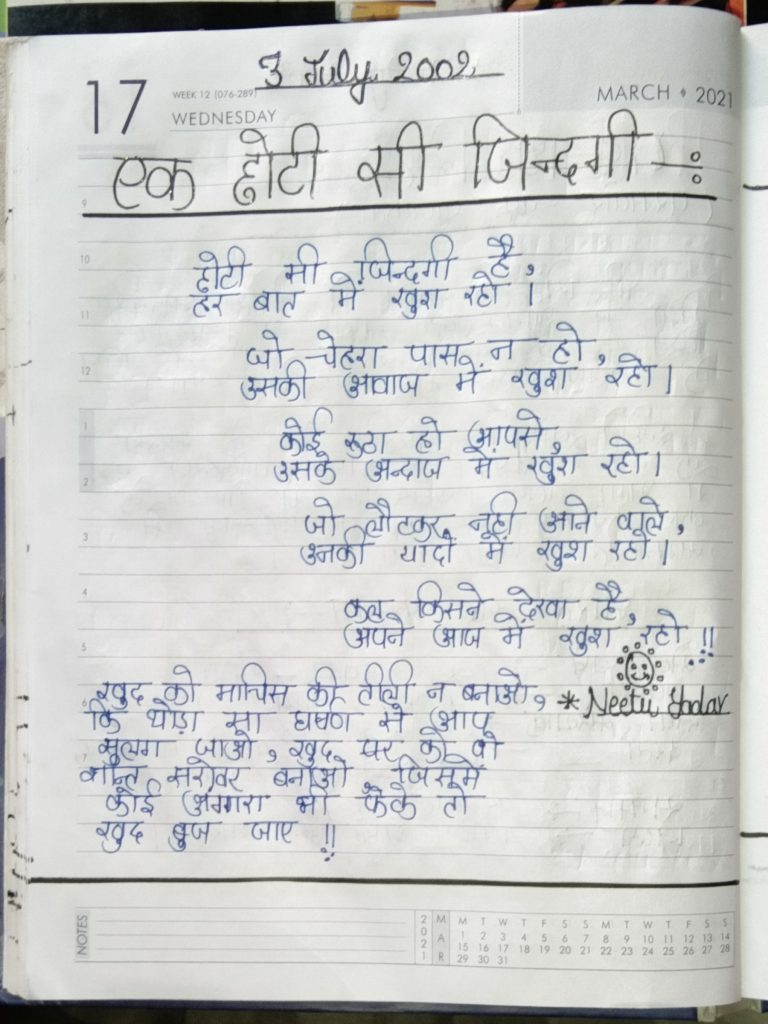 3 July 2002
17
WEEK 12 (076-289)
WEDNESDAY
MARCH • 2021
एक छोटी सी जिन्दगी —:
9
छोटी सी जिन्दगी है,
10
हर बात में खुश रहो ।
11
जो चेहरा पास न हो,
12
उसकी आवाज में खुश रहो ।
1
कोई रुठा हो आपसे,
उसके अन्दाज में खुश रहो ।
2
जो लौटकर नही आने वाले,
3
उनकी यादों में खुश रहो ।
4
कल किसने देखा है,
अपने आज में खुश रहो !!
5
खुद को माचिस की तीली न बनाओ,
* Neetu Yadav
6
कि थोड़ा सा घषण से आप
सुलग जाओ, खुद पर को वो
7
शान्त सरोवर बनाओ जिसमें
कोई अंगारा भी फेंके तो
8
खुद बुज जाए !!
NOTES
2021
MAR
M T W T F S S M T W T F S S
1 2 3 4 5 6 7 8 9 10 11 12 13 14
15 16 17 18 19 20 21 22 23 24 25 26 27 28
29 30 31